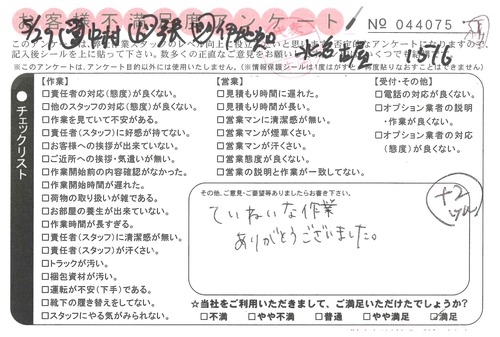 お客様不満足度アンケート
№ 044075
記入後シールを上に貼って下さい。数多くの正直なご意見をお願い
※このアンケートは、アンケート目的以外には使用いたしません。(※情報保護シールは1度はがすと、再度貼りなおすことはできません)
1576
チェックリスト
【作業】
□責任者の対応(態度)が良くない。
□他のスタッフの対応(態度)が良くない。
□作業を見ていて不安がある。
□責任者(スタッフ)に好感が持てない。
□お客様への挨拶が出来ていない。
□ご近所への挨拶・気遣いが無い。
□作業開始前の内容確認がなかった。
□作業開始時間が遅れた。
□荷物の取り扱いが雑である。
□お部屋の養生が出来ていない。
□作業時間が長すぎる。
□責任者(スタッフ)に清潔感が無い。
□責任者(スタッフ)が汗くさい。
□トラックが汚い。
□梱包資材が汚い。
□運転が不安(下手)である。
□靴下の履き替えをしてない。
□スタッフにやる気がみられない。
【営業】
□見積もり時間に遅れた。
□見積もり時間が長い。
□営業マンに清潔感が無い。
□営業マンが煙草くさい。
□営業マンが汗くさい。
□営業態度が良くない。
□営業の説明と作業が一致してない。
【受付・その他】
□電話の対応が良くない。
□オプション業者の説明
・作業が良くない。
□オプション業者の対応
(態度)が良くない。
その他、ご意見・ご要望等ありましたらお書き下さい。
ていねいな作業
ありがとうございました。
+2
☆当社をご利用いただきまして、ご満足いただけたでしょうか?
□不満 □やや不満 □普通 □やや満足 ☑満足